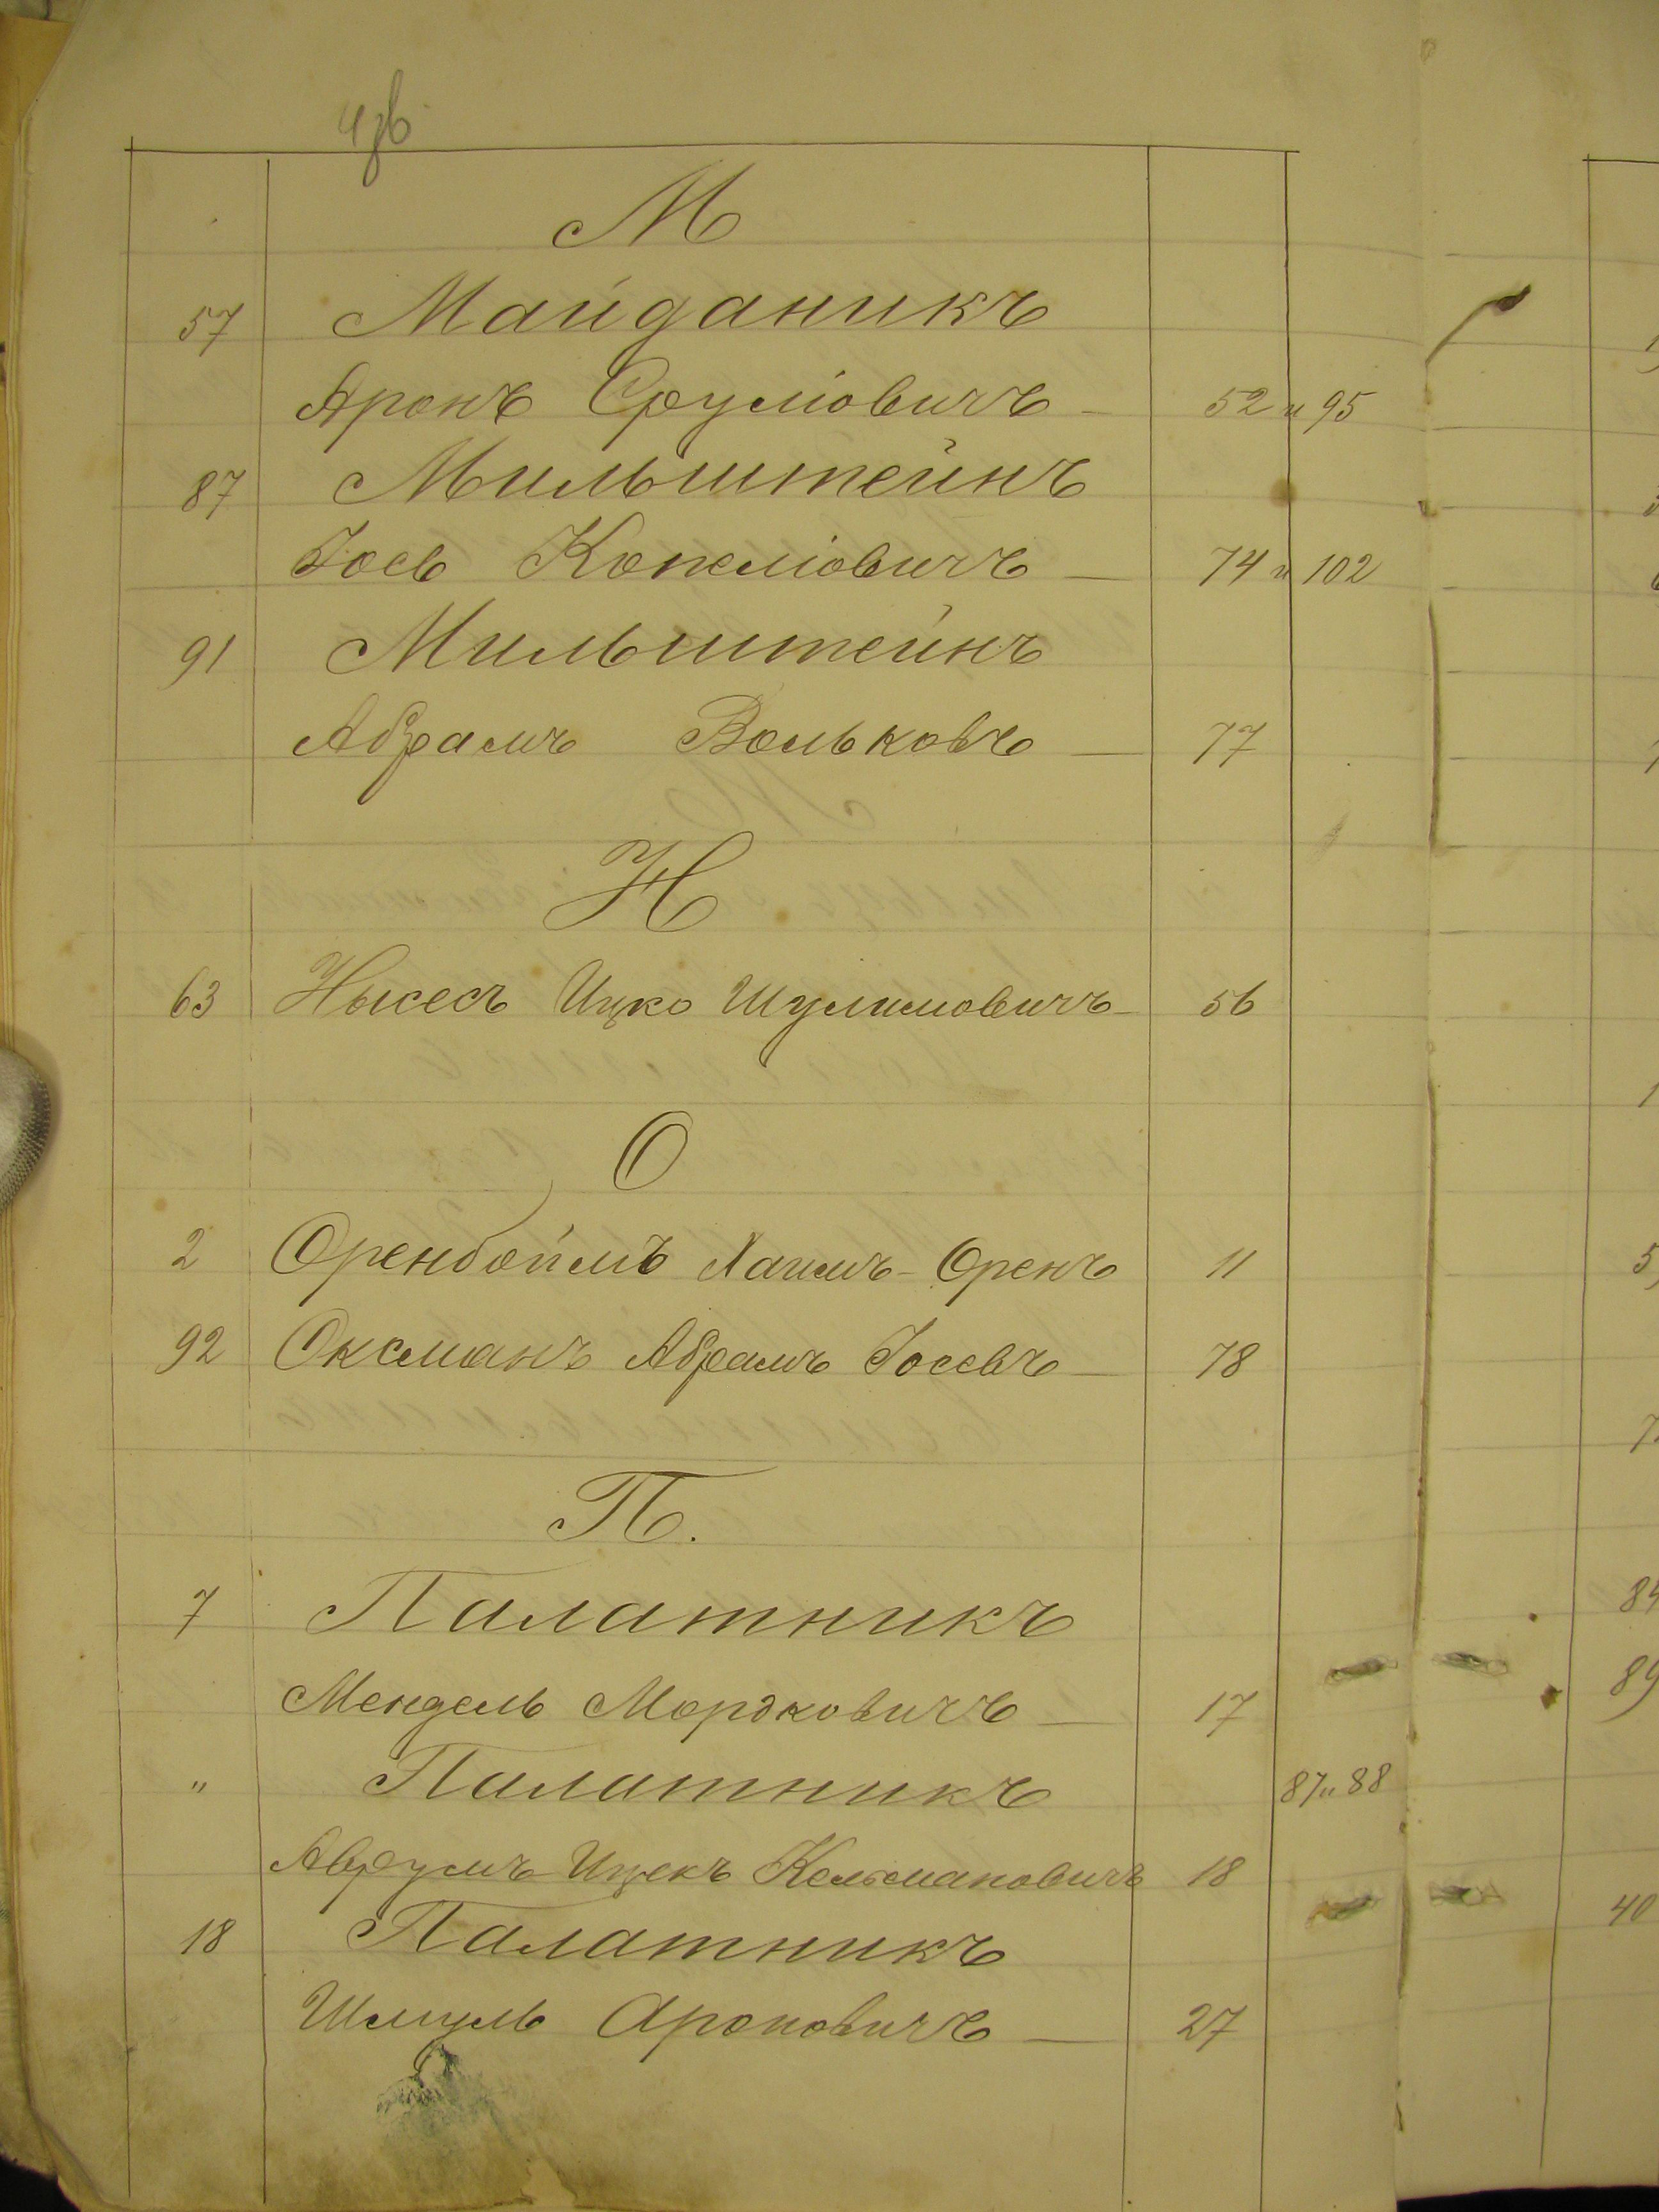 М
57 Майданикъ
Аронъ Сруліовичъ - 52 и 95
87 Мильштейнъ
Іось Копеліовичъ - 74 и 102
91 Мильштейнъ
Абрамъ Вольковъ - 77
Н
63 Нысесъ Ицко Шулимовичъ - 56
О
2 Оренбоймъ Хаимъ-Оренъ 11
92 Оксманъ Абрамъ Іосевъ - 78
П.
7 Палатникъ
Мендель Мордковичъ - 17
" Палатникъ 87 и 88
Аврумъ Ицекъ Кельмановичъ 18
18 Палатникъ
Шмуль Ароновичъ - 27
84
89
40